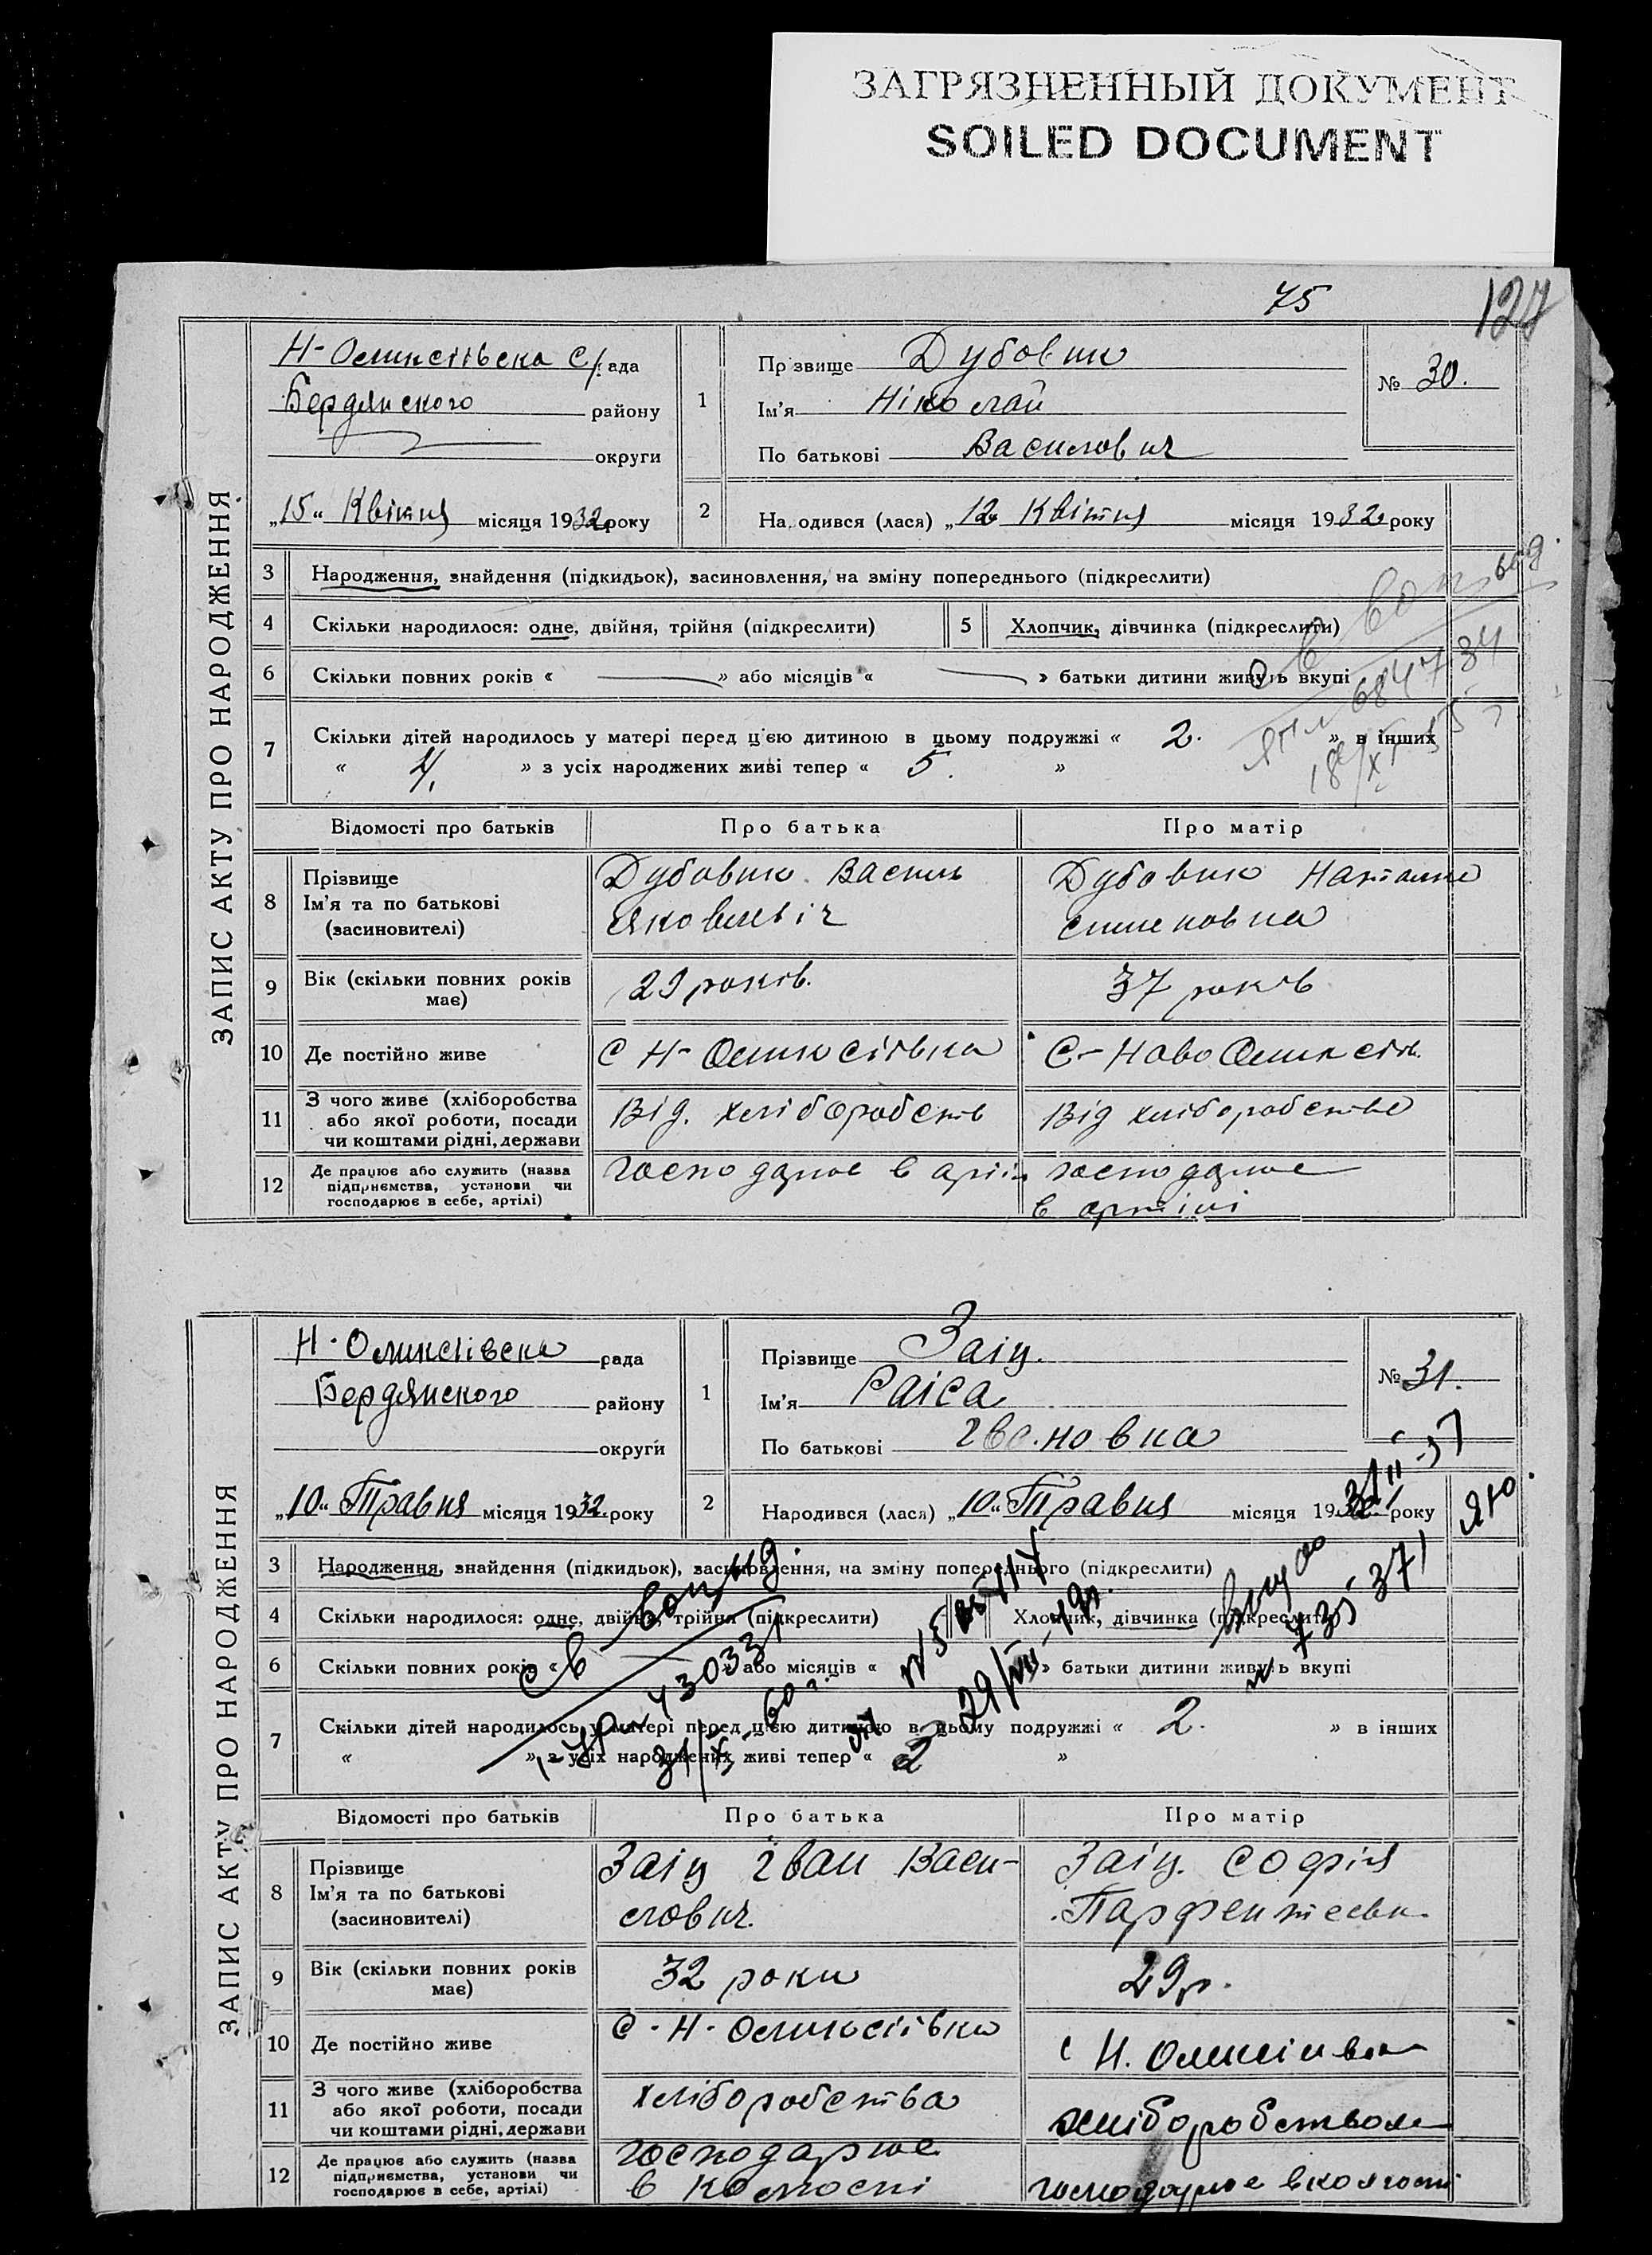 ЗАГРЯЗНЕННЫЙ ДОКУМЕНТ
SOILED DOCUMENT
75
127
ЗАПИС АКТУ ПРО НАРОДЖЕННЯ
Н-Олексіївска С/рада
Бердянского району
округи
„15“ Квітня місяця 1932 року
1
Прізвище Дубовик
Ім'я Ніколай
По батькові Василович
№ 30.
2
Народився (лася) „12 Квітня місяця 1932 року
3 Народження, знайдення (підкидьок), засиновлення, на зміну попереднього (підкреслити)
4 Скільки народилося: одне, двійня, трійня (підкреслити) 5 Хлопчик, дівчинка (підкреслити)
6 Скільки повних років « » або місяців « » батьки дитини живуть вкупі
7 Скільки дітей народилось у матері перед цією дитиною в цьому подружжі « 2. » в інших
« 4. » з усіх народжених живі тепер « 5. »
Відомості про батьків Про батька Про матір
8 Прізвище
Ім'я та по батькові
(засиновителі)
Дубовик Василь
Яковлевіч
Дубовик
9 Вік (скільки повних років має)
29 років.
37 років
10 Де постійно живе
С Н-Олексіївка
С-Ново Олексіїв.
11 З чого живе (хліборобства
або якої роботи, посади
чи коштами рідні, держави
Від. хліборобств
Від хліборобства
12 Де працює або служить (назва
підприємства, установи чи
господарює в себе, артілі)
господарює в
господарює
в артілі
ЗАПИС АКТУ ПРО НАРОДЖЕННЯ
Н-Олексіївска рада
Бердянского району
округи
„10“ Травня місяця 1932 року
1
Прізвище Заіц.
Ім'я Раіса
По батькові Івановна
№ 31.
2
Народився (лася) „10“ Травня місяця 1932 року
3 Народження, знайдення (підкидьок), засиновлення, на зміну попереднього (підкреслити)
4 Скільки народилося: одне, двійня, трійня (підкреслити) Хлопчик, дівчинка (підкреслити)
6 Скільки повних років « » або місяців « » батьки дитини живуть вкупі
7 Скільки дітей народилось у матері перед цією дитиною в цьому подружжі « 2. » в інших
« » з усіх народжених живі тепер « 2 »
Відомості про батьків Про батька Про матір
8 Прізвище
Ім'я та по батькові
(засиновителі)
Заіц Іван Васи-
лович.
Заіц. Софія
9 Вік (скільки повних років має)
32 роки
29 р.
10 Де постійно живе
С-Н-Олексіївка
с Н.
11 З чого живе (хліборобства
або якої роботи, посади
чи коштами рідні, держави
хліборобства
хліборобством
12 Де працює або служить (назва
підприємства, установи чи
господарює в себе, артілі)
господарює
в колгоспі
господарює в колгоспі